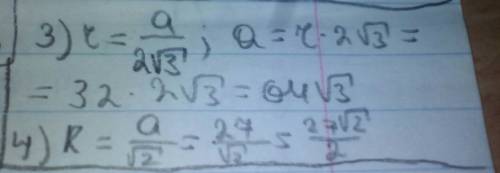 3) r = a/2√3; a = r · 2√3 =
= 32 · 2√3 = 64√3
4) R = a/√2 = 27/√2 = 27√2/2